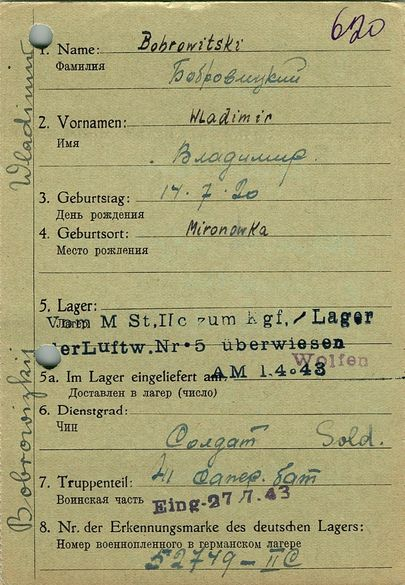 620
1. Name: Bobrowitski
Фамилия Бобровицкий
2. Vornamen: Wladimir
Имя Владимир.
3. Geburtstag: 14.7.20
День рождения
4. Geburtsort: Mironowka
Место рождения
5. Lager:
Vom M St,IIc zum Kgf,/Lager
derLuftw.Nr.5 überwiesen
Wolfen
5a. Im Lager eingeliefert am, AM 1.4.43
Доставлен в лагер (число)
6. Dienstgrad:
Чин Солдат Sold.
7. Truppenteil: 41 сапер. бат
Воинская часть Eing-27.7.43
8. Nr. der Erkennungsmarke des deutschen Lagers:
Номер военнопленного в германском лагере
52749 – IIC
Bobrowizkij Wladimir